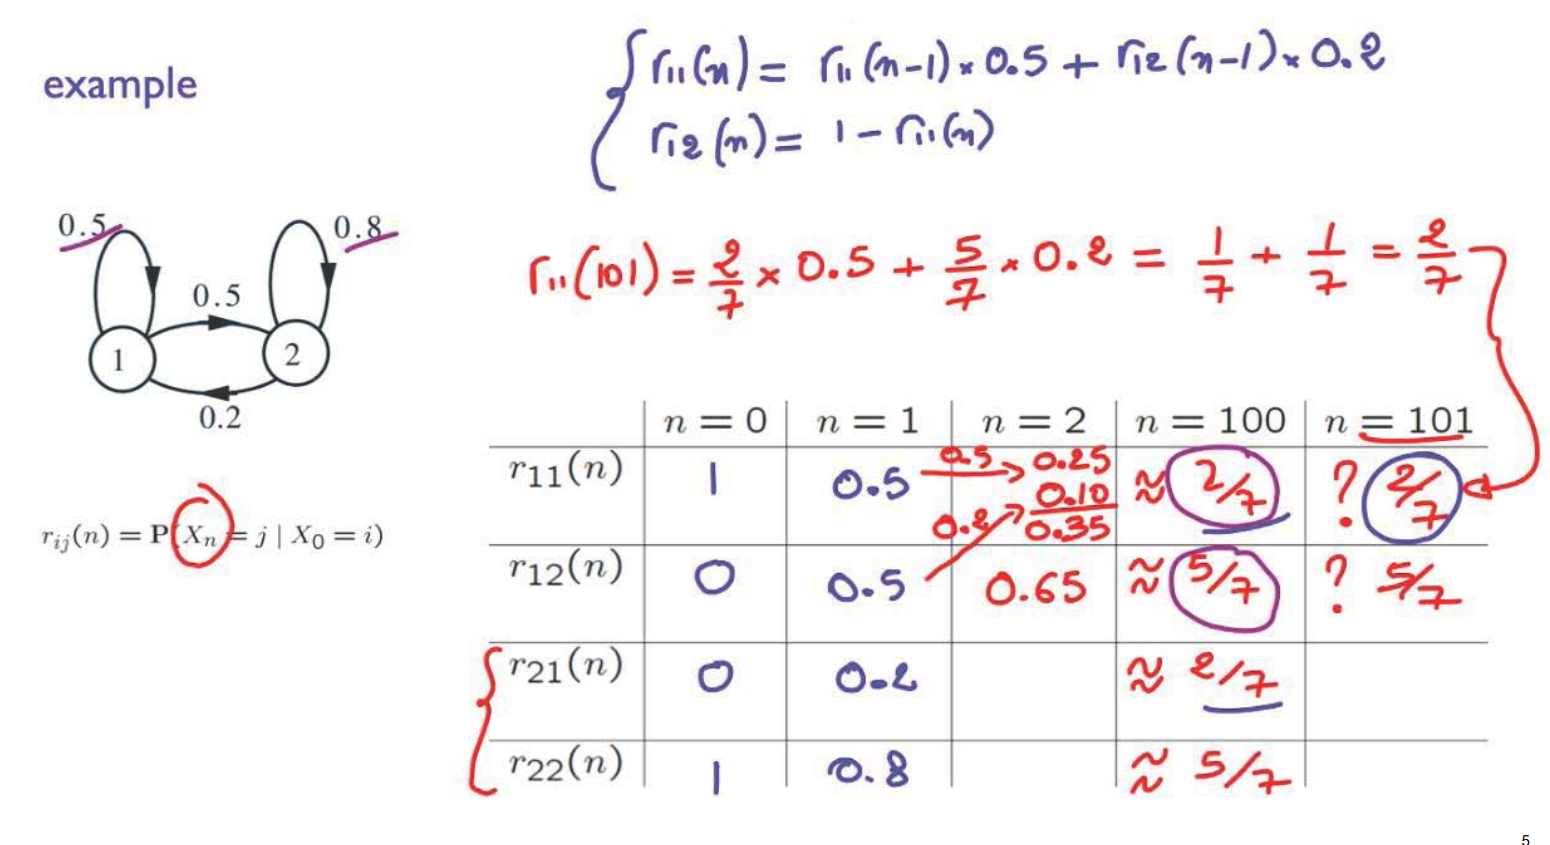 example
r₁₁(n) = r₁₁(n-1) × 0.5 + r₁₂(n-1) × 0.2
r₁₂(n) = 1 - r₁₁(n)
0.5
0.8
0.5
1
2
0.2
r₁₁(101) = 2/7 × 0.5 + 5/7 × 0.2 = 1/7 + 1/7 = 2/7
rᵢⱼ(n) = P(Xₙ = j | X₀ = i)
n = 0 n = 1 n = 2 n = 100 n = 101
r₁₁(n) 1 0.5 0.5 0.25 ≈ 2/7 ? 2/7
0.10
0.2 0.35
r₁₂(n) 0 0.5 0.65 ≈ 5/7 ? 5/7
r₂₁(n) 0 0.2 ≈ 2/7
r₂₂(n) 1 0.8 ≈ 5/7
5